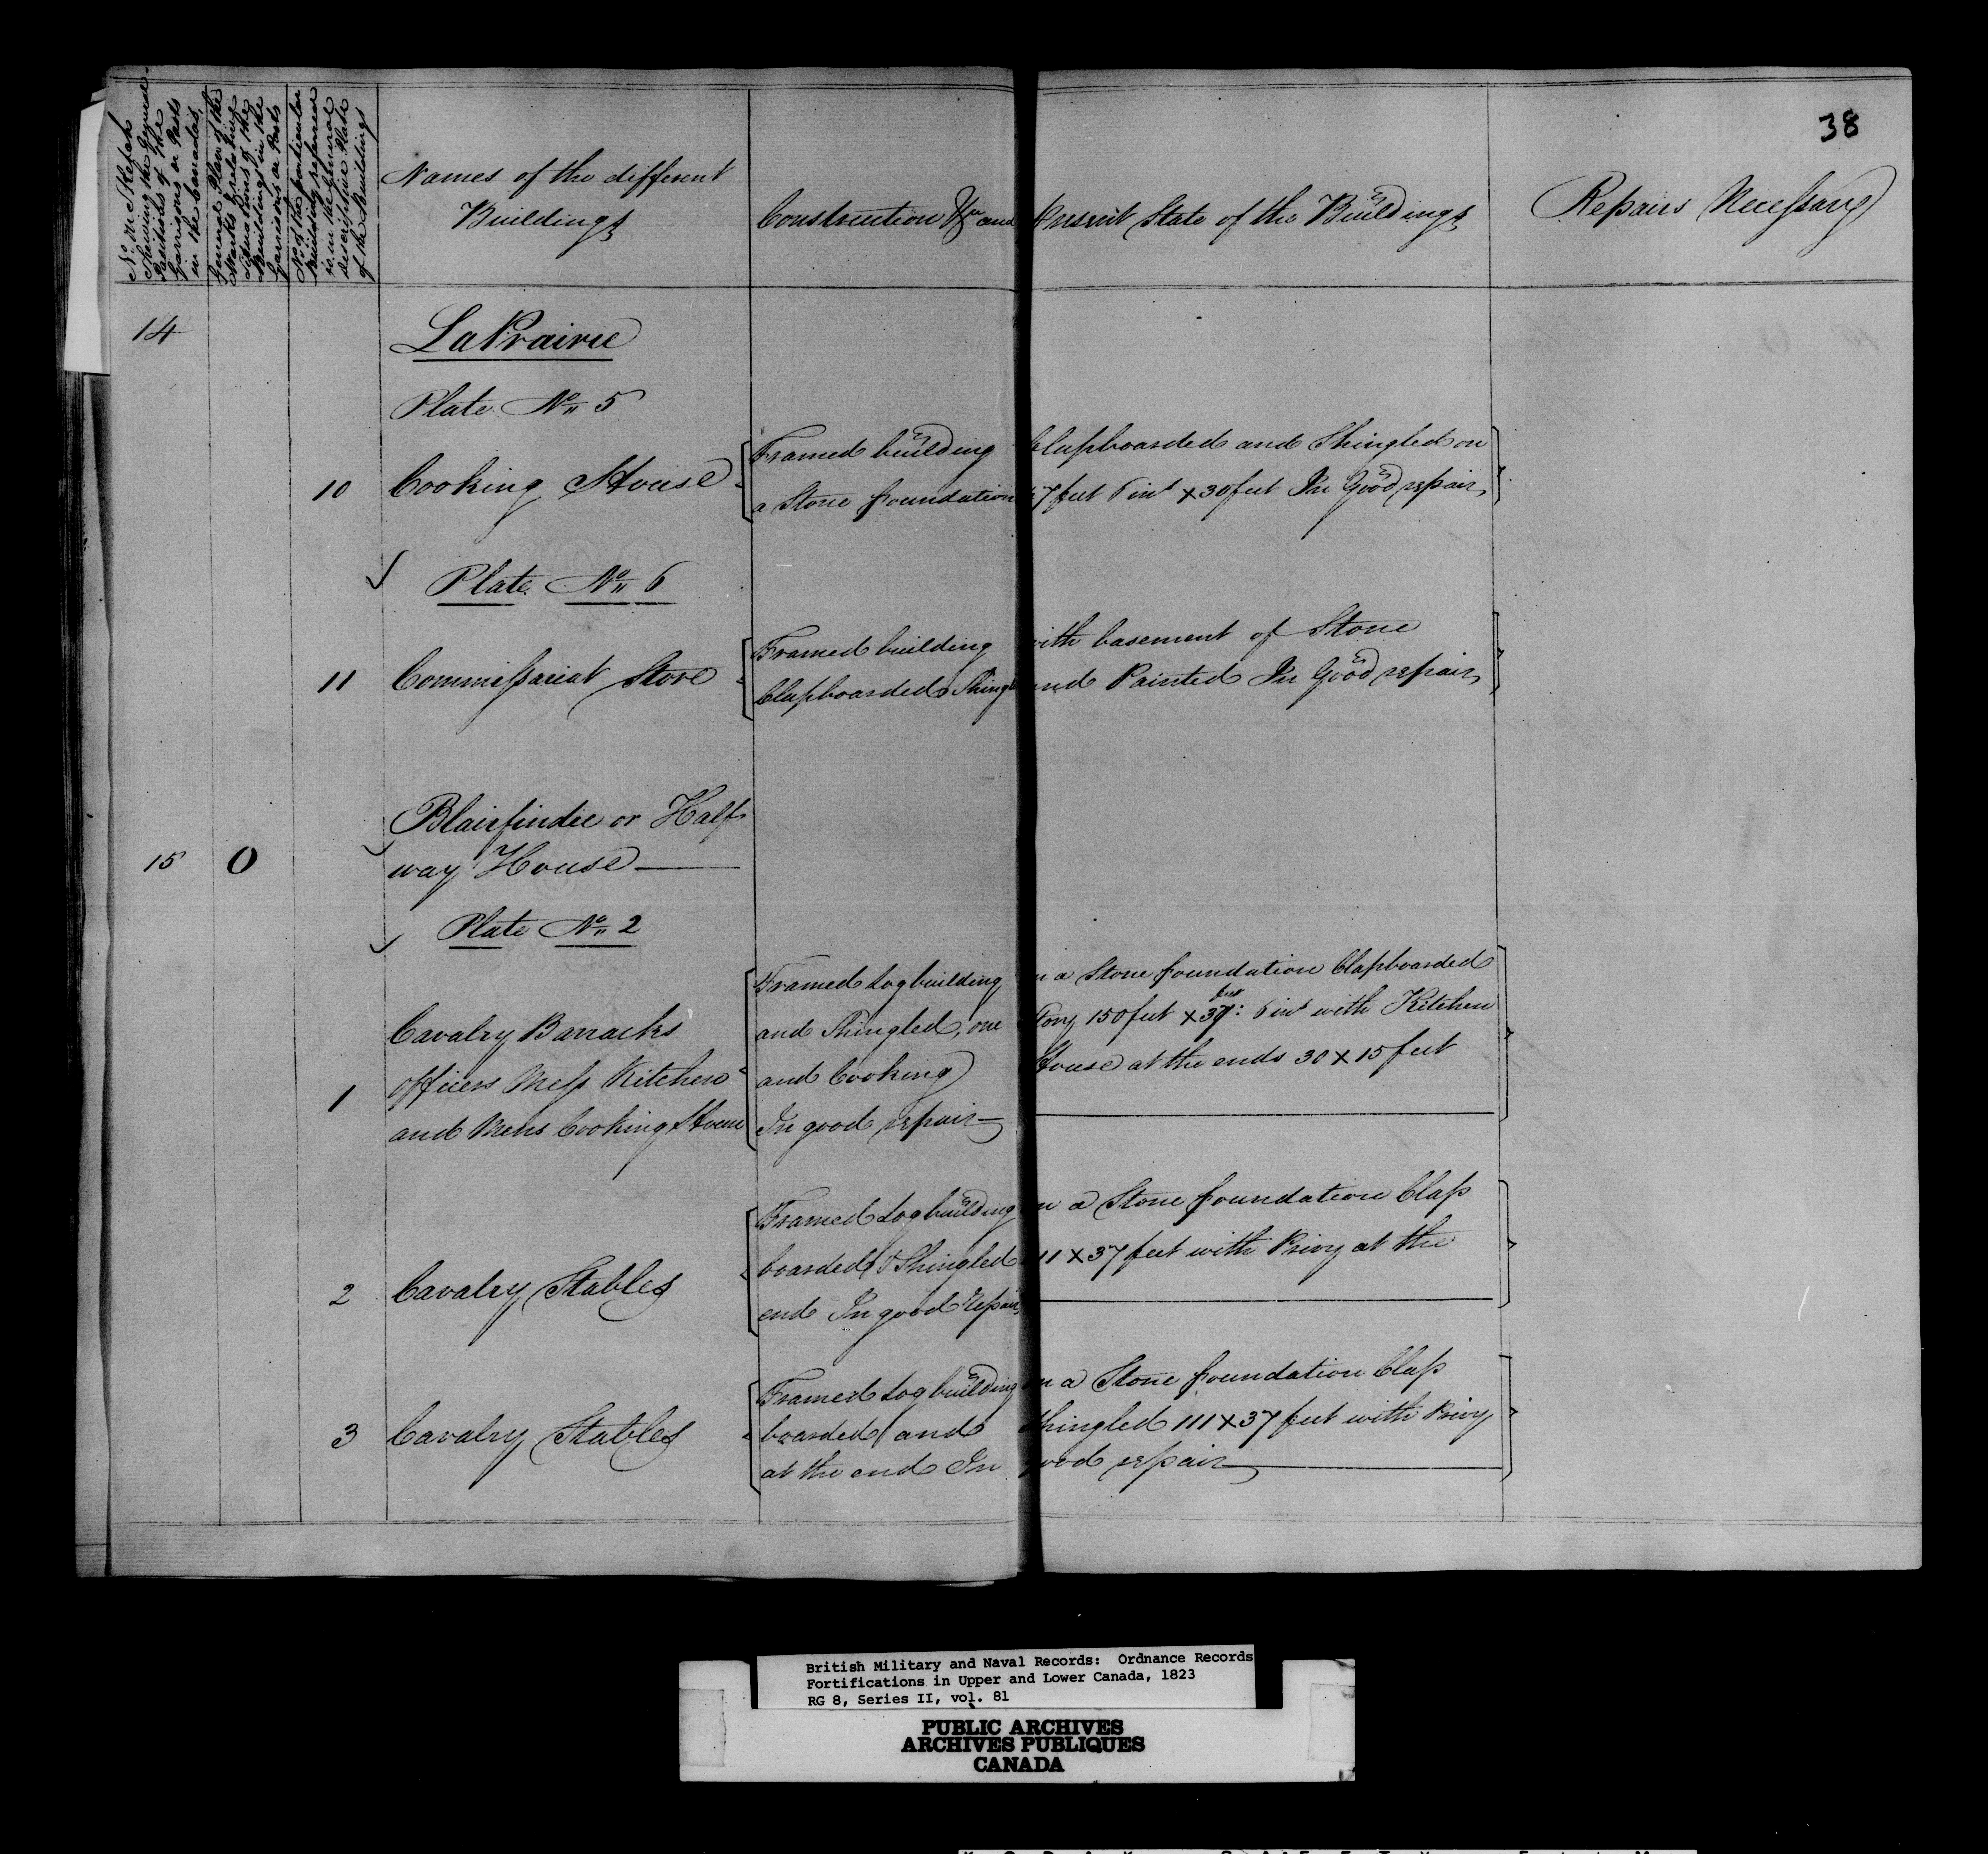 38
No. in Sketch
Shewing the General
Positions of the
Garrisons or Posts
in the Canadas.
General Plan of the
Marks & relative
Situations of the
Buildings in the
Garrisons or Posts
No. of the particular
Building referenced
in the General
descriptive Plate
of the Buildings
Names of the different
Buildings
Construction &c and Present State of the Buildings
Repairs Necessary
14
LaPrairie
Plate No. 5
10 Cooking House
Framed building Clapboarded and Shingled on
a Stone foundation 7 feet 6 ins x 30 feet In Good repair
Plate No. 6
11 Commissariat Store
Framed building with basement of Stone
Clapboarded Shingl and Painted In Good repair
15 O
Blairfindie or Half
way House
Plate No. 2
1
Cavalry Barracks
officers Mess Kitchen
and Mens Cooking House
Framed Log building on a Stone foundation Clapboarded
and Shingled, one Story 150 feet x 37 feet: 6 ins with Kitchen
and Cooking House at the ends 30 x 15 feet
In good repair
2 Cavalry Stables
Framed Log building on a Stone foundation Clap
boarded & Shingled 111 x 37 feet with Privy at the
end In good Repair
3 Cavalry Stables
Framed Log building on a Stone foundation Clap
boarded and Shingled 111 x 37 feet with Privy
at the end In good repair
British Military and Naval Records: Ordnance Records
Fortifications in Upper and Lower Canada, 1823
RG 8, Series II, vol. 81
PUBLIC ARCHIVES
ARCHIVES PUBLIQUES
CANADA